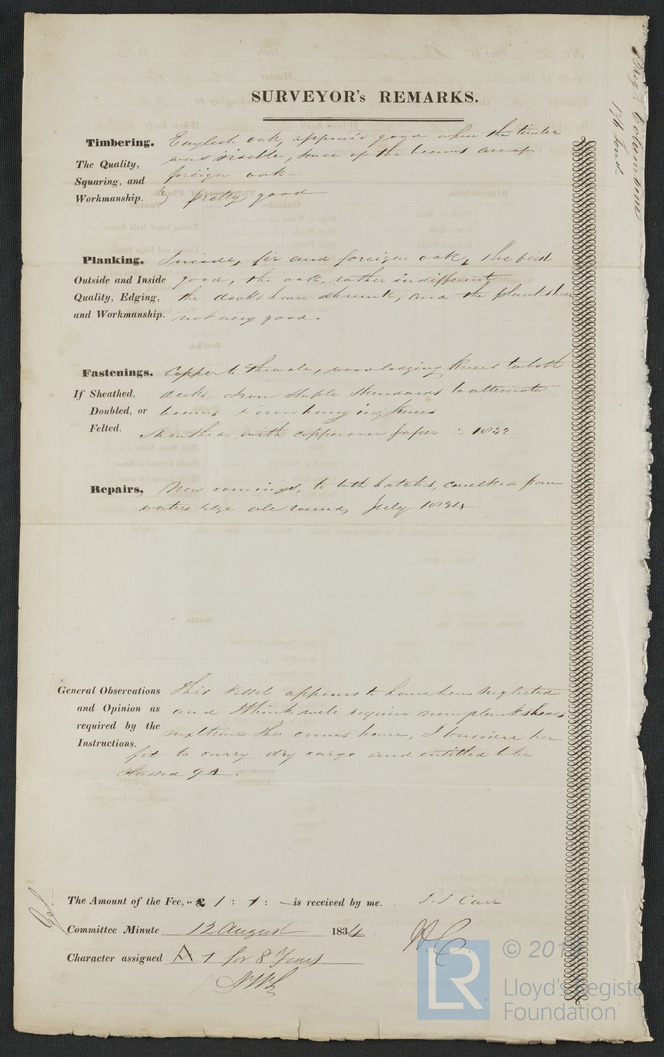 SURVEYOR's REMARKS.
Timbering. English oak, appears good when the timber
was visible, some of the beams are of
The Quality, foreign oak
Squaring, and
Workmanship. pretty good
Planking. Inside, fir and foreign oak, the
Outside and Inside good, the oak, rather indifferent
Quality, Edging, the decks have shrunk, and the plansheer
and Workmanship. not very good.
Fastenings. Copper to the wale, wood lodging knees to both
If Sheathed, decks Iron staple standards to alternate
Doubled, or beams, & iron hanging knees
Felted.
Sheathed with copper over paper - 1832
Repairs. New comings, to both hatches, caulked from
waters edge all round, July 1834
General Observations This vessel appears to have been neglected
and Opinion as and I think will require new plansheers
required by the next time she comes home, I consider her
Instructions.
fit to carry dry cargo and entitled to be
classed
The Amount of the Fee, .. £ 1 : 1 : - is received by me. J. J. Carr
Committee Minute 12 August 1834
Character assigned A 1 for 8 Years
LR
© 201
Lloyd's Registe
Foundation